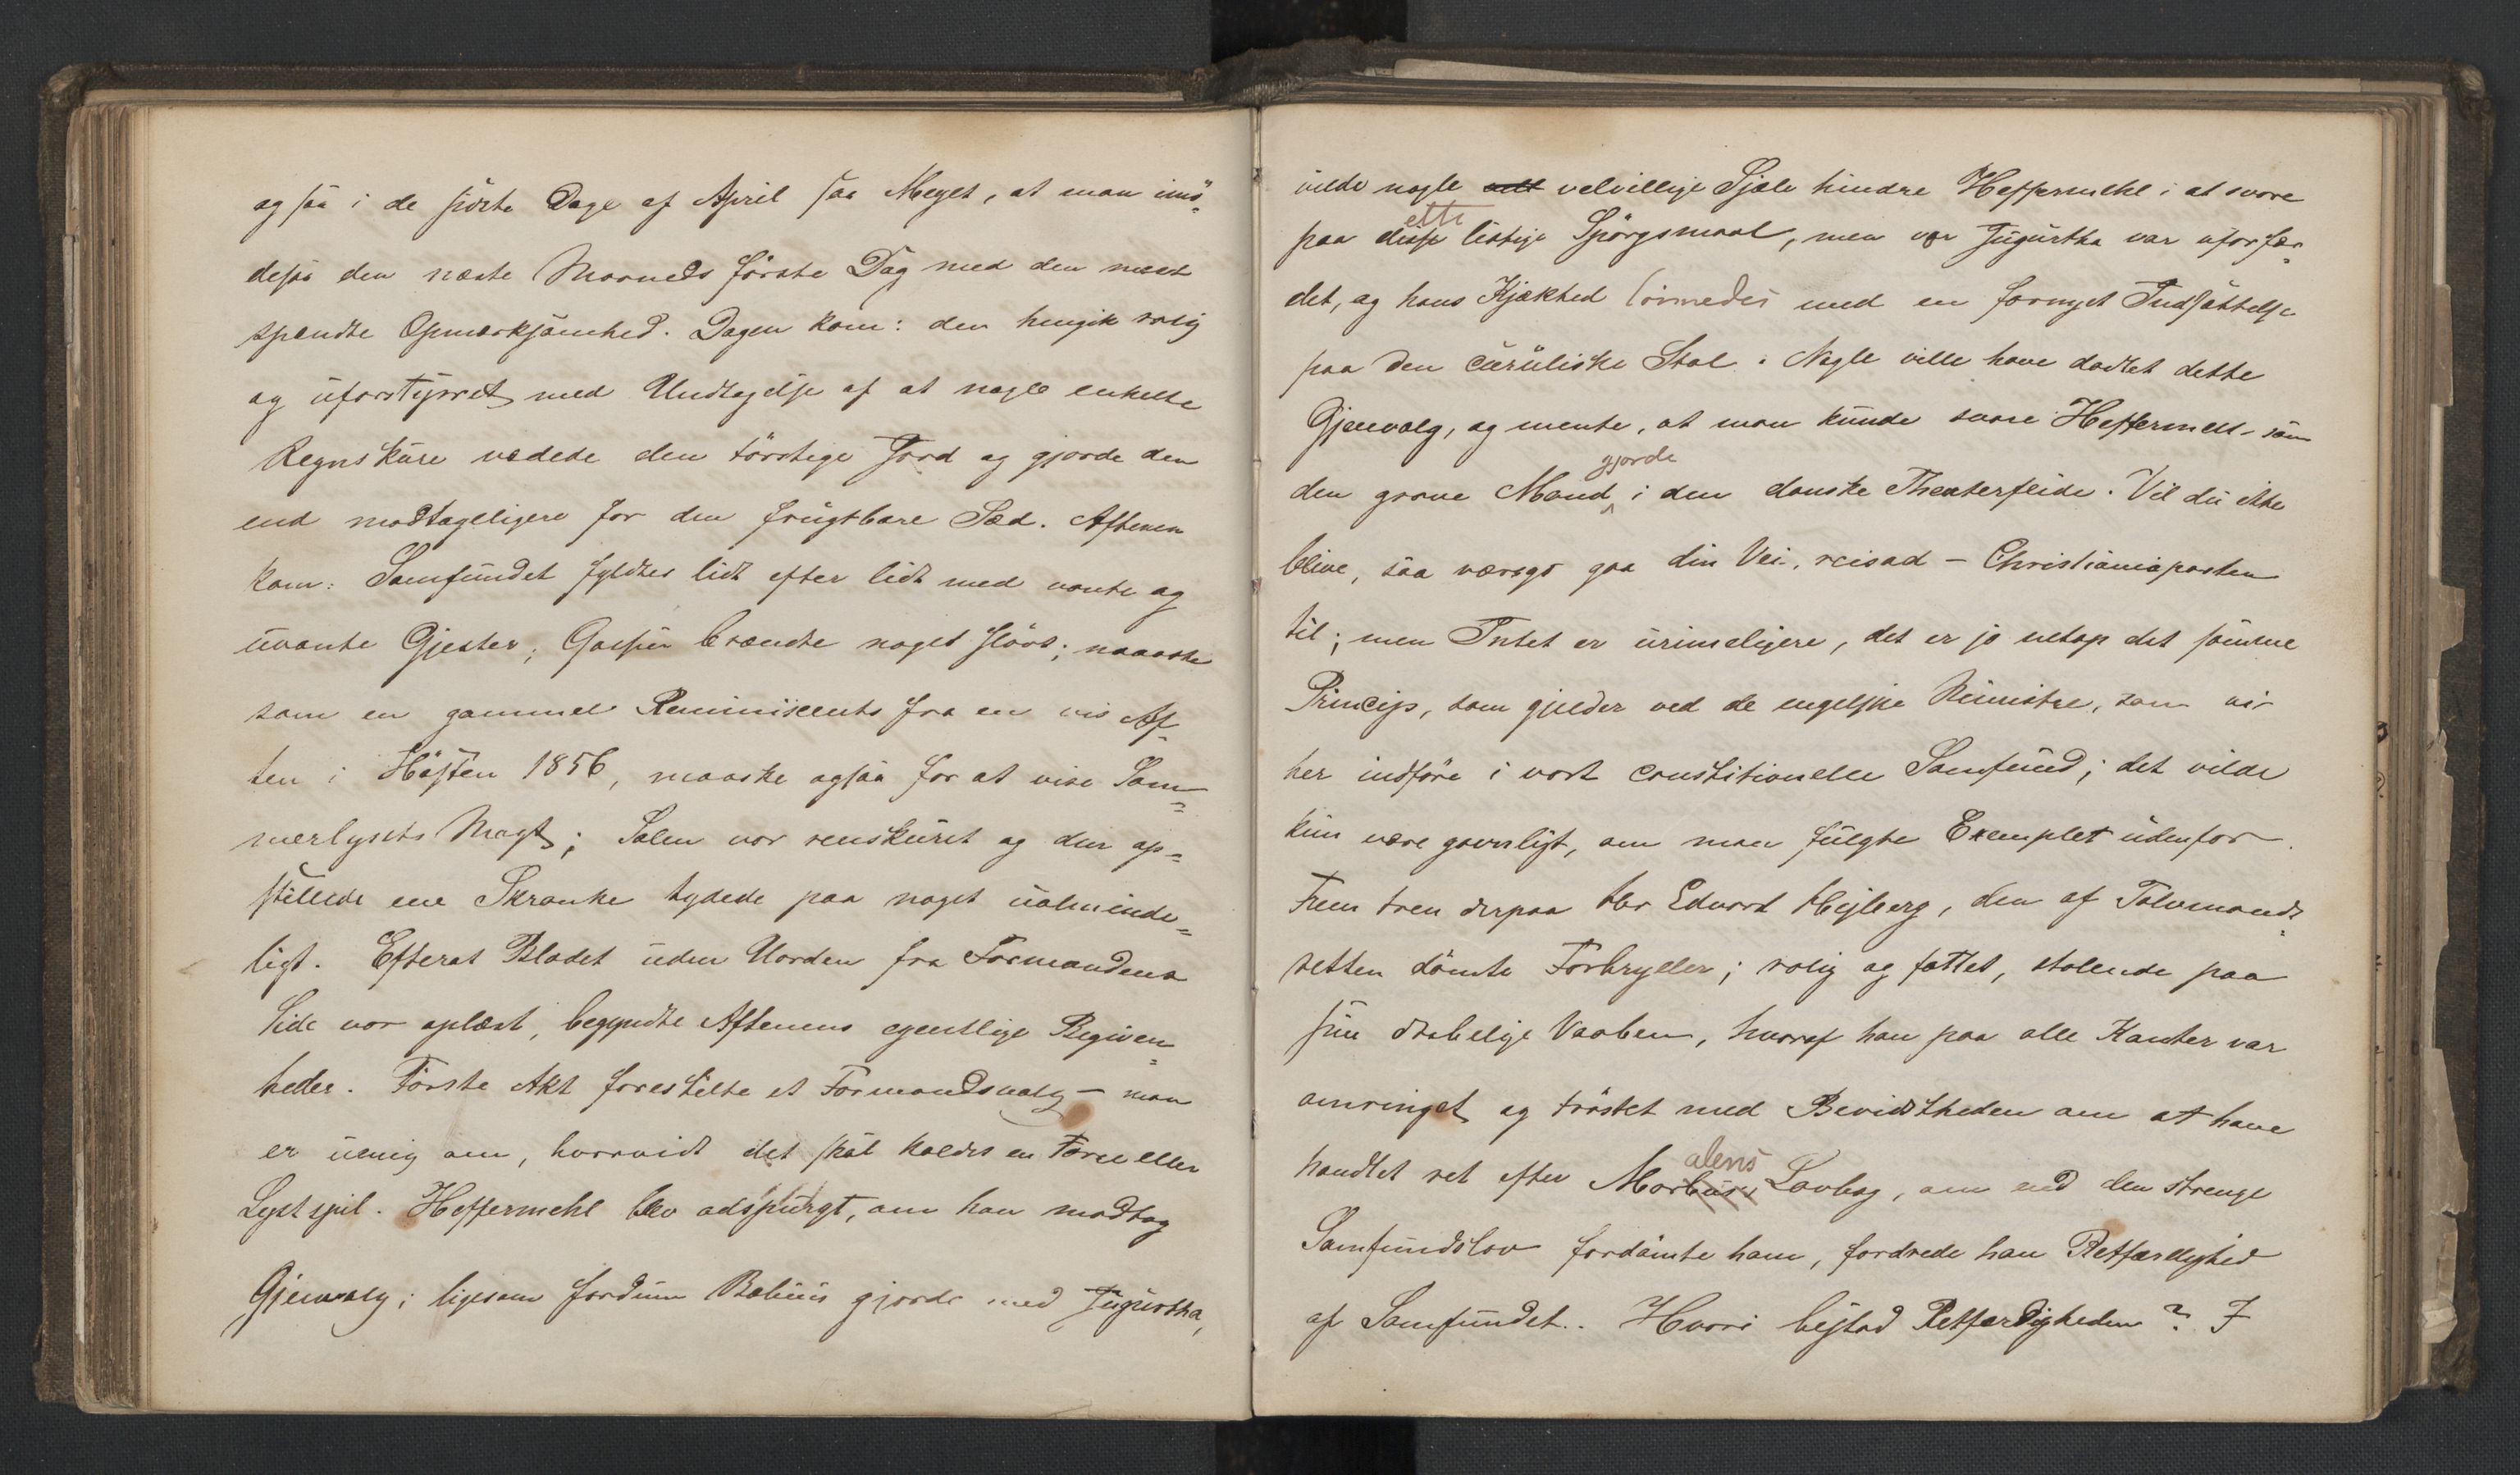 ogsaa i de sidste Dage af April saa Meget, at man imö-
desaa den næste Maaneds første Dag med den mest
spændte Opmærksomhed. Dagen kom: den hengik rolig
og uforstyrret med Undtagelse af at nogle enkelte
Regnskure vædede den törstige Jord og gjorde den
end modtageligere for den frugtbare Sæd. Aftenen
kom: Samfundet fyldtes lidt efter lidt med vante og
uvante Gjester; Gassen brændte noget slövt; maaske
som en gammel Reminiscents fra en vis Af-
ten i Hösten 1856, maaske ogsaa for at vise Som-
merlysets Magt; Salen var renskuret og den op-
stillede ene Skranke tydede paa noget ualminde-
ligt. Efterat Bladet uden Uorden fra Formandens
Side var oplæst, begyndte Aftenens egentlige Begiven-
heder. Förste Akt forestilte et Formandsvalg - man
er uenig om, hvorvidt det skal kaldes en Farce eller
Lystspil. Heffermehl blev adspurgt, om han modtog
Gjenvalg; ligesom fordum Bæbius gjorde med Jugurtha,
vilde nogle velvillige Sjæle hindre Heffermehl i at svare
paa dette listige Spörgsmaal, men vor Jugurtha var uforfær-
det, og hans Kjækhed lönnedes med en fornyet Indsættelse
paa den curuliske Stol. Nogle ville have dadlet dette
Gjenvalg, og mente, at man kunde svare Heffermehl - som
den grove Mand gjorde i den danske Theaterfeide. Vil du ikke
blive, saa værsgo gaa din Vei, reisad - Christianiaposten
til; men Intet er urimeligere, det er jo netop det samme
Princip, som gjelder ved de engelske Ministre, som vi
her indföre i vort constitionelle Samfund; det vilde
kun være gavnligt, om man fulgte Exemplet udenfor.
Frem tren derpaa Hr Edvard Hejberg, den af Tolvmands-
retten dömte Forbryder; rolig og fattet, stolende paa
sine Vaaben, hvoraf han paa alle Kanter var
omringet og tröstet med Bevidstheden om at have
handlet ret efter Moralens Lovbog, om end den strenge
Samfundslov fordömte ham, fordrede han Retfærdighed
af Samfundet. Hvori bestod Retfærdigheden? I